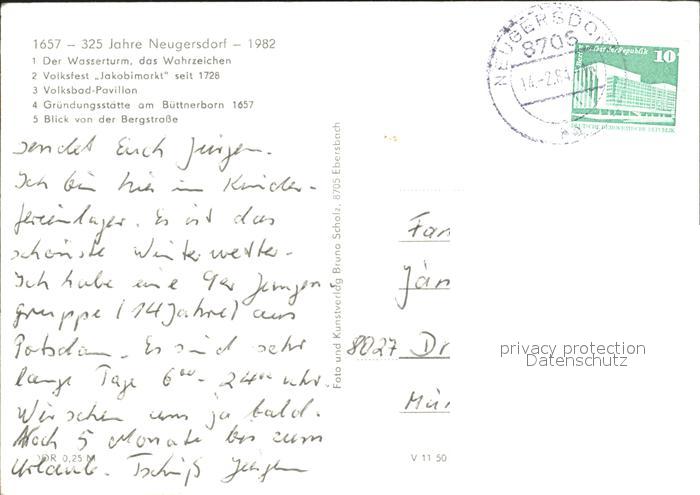 1657 – 325 Jahre Neugersdorf – 1982
1 Der Wasserturm, das Wahrzeichen
2 Volksfest „Jakobimarkt" seit 1728
3 Volksbad-Pavillon
4 Gründungsstätte am Büttnerborn 1657
5 Blick von der Bergstraße
sendet Euch Jürgen.
Ich bin hier im Kinder-
ferienlager. Es ist das
schönste Winterwetter.
Ich habe eine 9er Jungen
gruppe (14 Jahre) aus
Potsdam. Es sind sehr
lange Tage 6⁰⁰- 24⁰⁰ Uhr.
Wir sehen uns ja bald.
Noch 5 Monate bis zum
Urlaub. Tschüß Jürgen
DDR 0,25 M
Foto und Kunstverlag Bruno Scholz, 8705 Ebersbach
V 11 50
NEUGERSDORF
8705
14.-2.84
10
DEUTSCHE DEMOKRATISCHE REPUBLIK
Fam
Jän
8027 Dr
Mün
privacy protection
Datenschutz